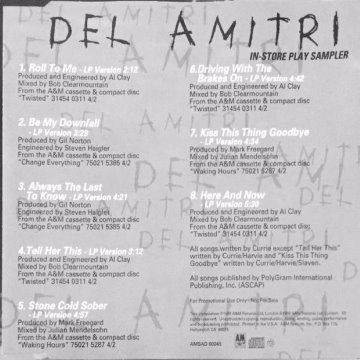 DEL AMITRI
IN-STORE PLAY SAMPLER
1. Roll To Me - LP Version 2:12
Produced and Engineered by Al Clay
Mixed by Bob Clearmountain
From the A&M cassette & compact disc
"Twisted" 31454 0311 4/2
2. Be My Downfall
- LP Version 3:29
Produced by Gil Norton
Engineered by Steven Haigler
From the A&M cassette & compact disc
"Change Everything" 75021 5385 4/2
3. Always The Last
To Know - LP Version 4:21
Produced by Gil Norton
Engineered by Steven Haigler
From the A&M cassette & compact disc
"Change Everything" 75021 5385 4/2
4. Tell Her This - LP Version 3:12
Produced and Engineered by Al Clay
Mixed by Bob Clearmountain
From the A&M cassette & compact disc
"Twisted" 31454 0311 4/2
5. Stone Cold Sober
- LP Version 4:57
Produced by Mark Freegard
Mixed by Julian Mendelsohn
From the A&M cassette & compact disc
"Waking Hours" 75021 5287 4/2
6. Driving With The
Brakes On - LP Version 4:42
Produced and Engineered by Al Clay
Mixed by Bob Clearmountain
From the A&M cassette & compact disc
"Twisted" 31454 0311 4/2
7. Kiss This Thing Goodbye
- LP Version 4:34
Produced by Mark Freegard
Mixed by Julian Mendelsohn
From the A&M cassette & compact disc
"Waking Hours" 75021 5287 4/2
8. Here And Now
- LP Version 5:30
Produced and Engineered by Al Clay
Mixed by Bob Clearmountain
From the A&M cassette & compact disc
"Twisted" 31454 0311 4/2
All songs written by Currie except "Tell Her This"
written by Currie/Harvie and "Kiss This Thing
Goodbye" written by Currie/Harvie/Slaven.
All songs published by PolyGram International
Publishing, Inc. (ASCAP)
For Promotional Use Only • Not For Sale
AMSAD 00045
A&M
DEL AMITRI